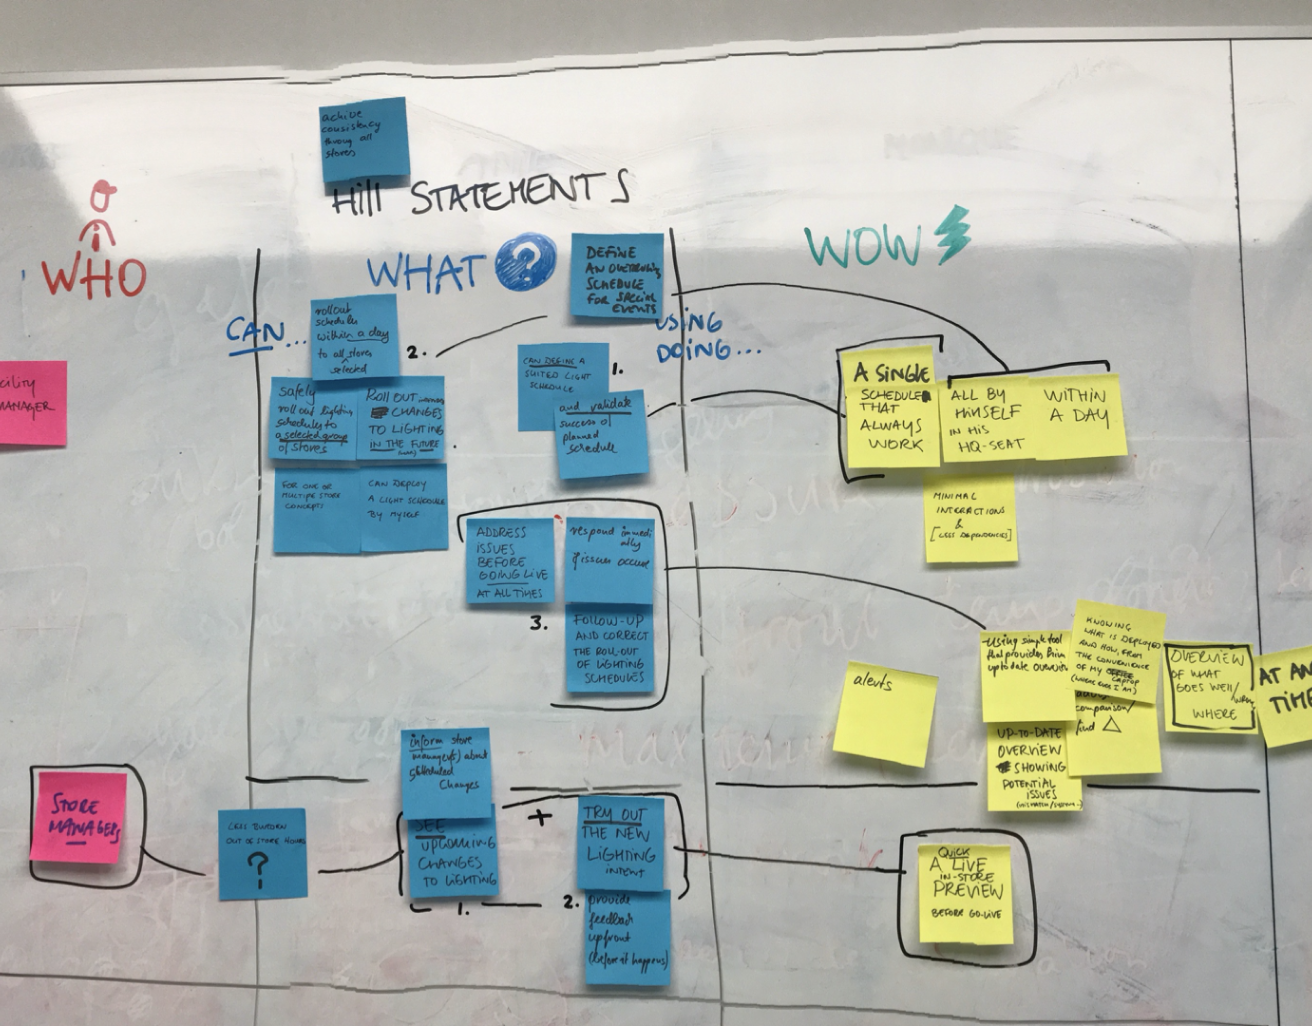 achive
consistency
throug all
stores
Hill STATEMENTS
WHO
WHAT ?
WOW
CAN...
USING
DOING...
DEFINE
AN OVERRULING
SCHEDULE
FOR SPECIAL
EVENTS
rollout
schedules
within a day
to all stores
selected
2.
safely
roll out lighting
schedules to
a selected group
of stores
ROLL OUT
CHANGES
TO LIGHTING
IN THE FUTURE
FOR ONE OR
MULTIPLE STORE
CONCEPTS
CAN DEPLOY
A LIGHT SCHEDULE
BY MYSELF
CAN DEFINE A
SUITED LIGHT
SCHEDULE
1.
and validate
success of
planned
schedule
A SINGLE
SCHEDULE
THAT
ALWAYS
WORK
ALL BY
HIMSELF
IN HIS
HQ-SEAT
WITHIN
A DAY
MINIMAL
INTERACTIONS
&
[LESS DEPENDENCIES]
cility
MANAGER
ADDRESS
ISSUES
BEFORE
GOING LIVE
AT ALL TIMES
respond immedi
ately
if issues occure
3.
FOLLOW-UP
AND CORRECT
THE ROLL-OUT
OF LIGHTING
SCHEDULES
alerts
using simple tool
that provides him
up to date overview
KNOWING
WHAT IS DEPLOYED
AND HOW, FROM
THE CONVENIENCE
OF MY LAPTOP
(WHERE EVER I AM)
comparison/
find △
UP-TO-DATE
OVERVIEW
SHOWING
POTENTIAL
ISSUES
OVERVIEW
OF WHAT
GOES WELL/WRONG
WHERE
AT AN
TIME
STORE
MANAGERS
LESS BURDEN
OUT OF STORE HOURS
?
inform store
manager(s) about
scheduled
changes
SEE
UPCOMING
CHANGES
TO LIGHTING
1.
+
TRY OUT
THE NEW
LIGHTING
INTENT
2.
provide
feedback
upfront
(before it happens)
QUICK
A LIVE
IN-STORE
PREVIEW
BEFORE GO-LIVE